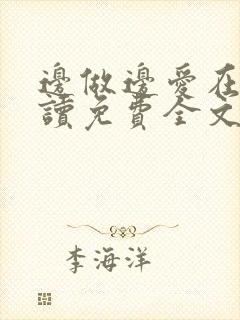 邊做邊愛在
讀免費全文
李海洋